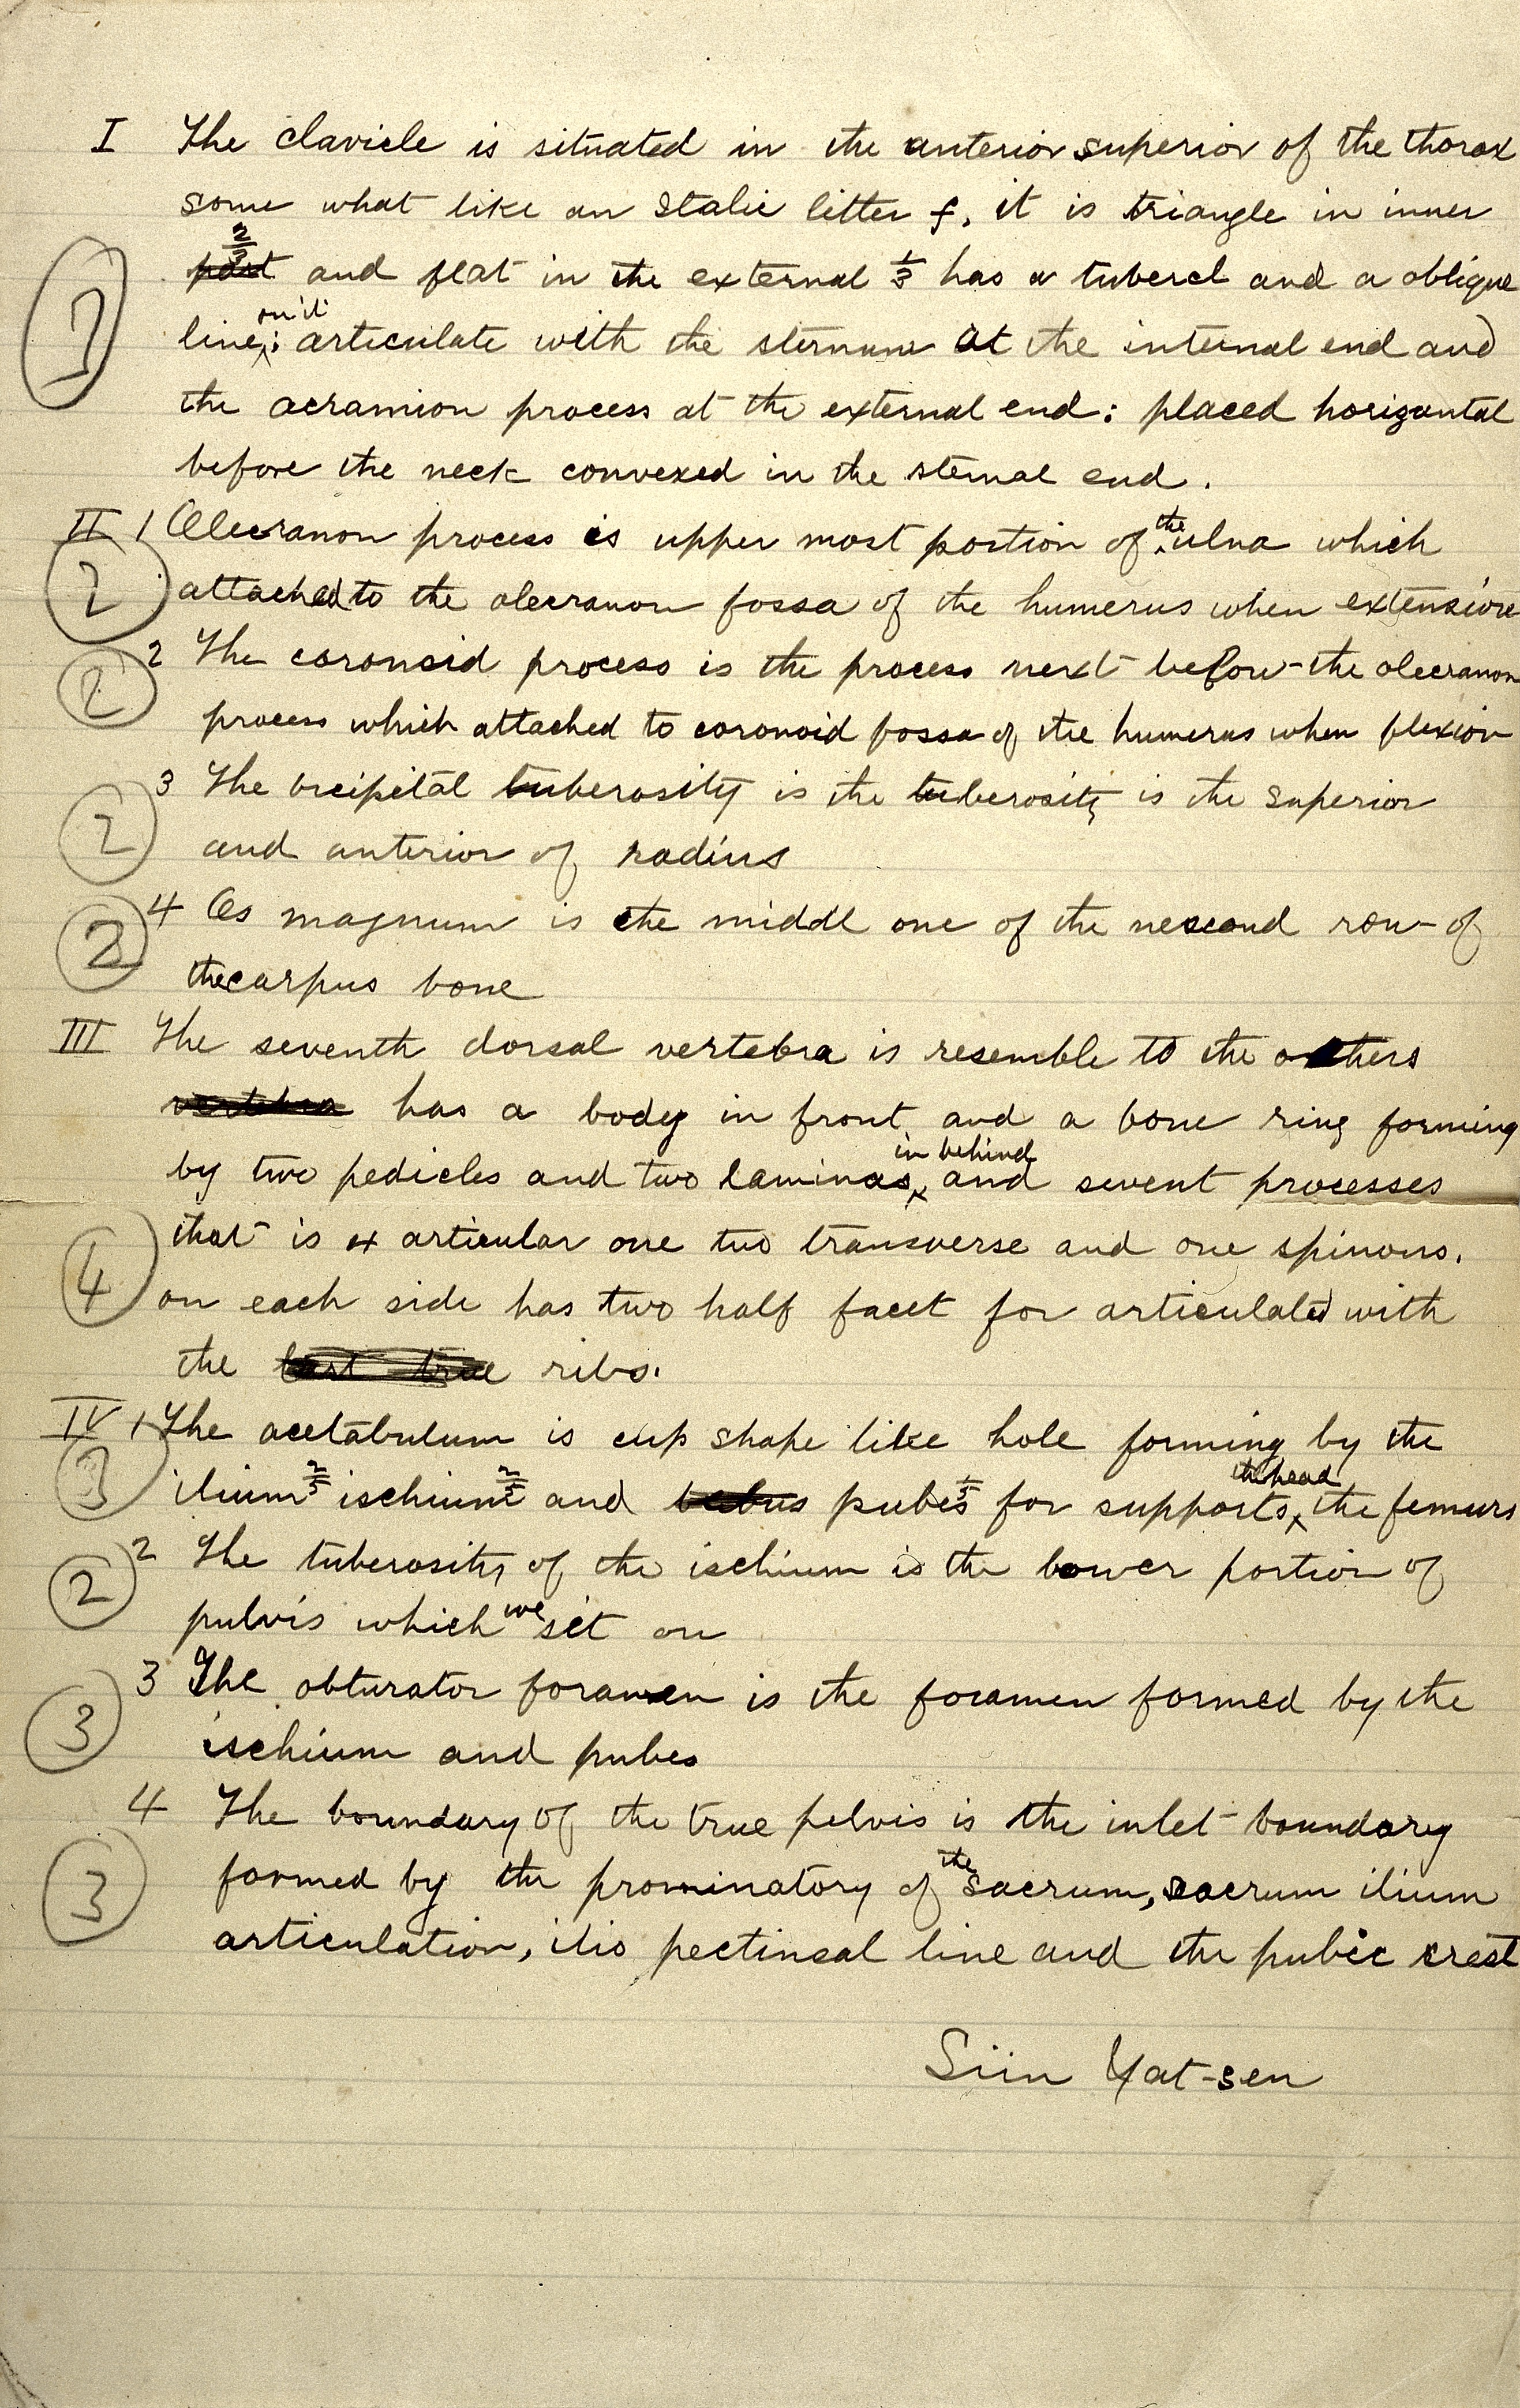 I The clavicle is situated in the anterior superior of the thorax
some what like an Italic litter f, it is triangle in inner
2/3
part and flat in the external 1/3 has a tubercl and a oblique
on it
line; articulate with the sternum at the internal end and
7
the acramion process at the external end: placed horizontal
before the neck convexed in the sternal end.
II 1 Olecranon process is upper most portion of the ulna which
2 attached to the olecranon fossa of the humerus when extensione
2 The coronoid process is the process next before the olecranon
2
process which attached to coronoid fossa of the humerus when flexion
3 The bicipital tuberosity is the tuberosity is the superior
2 and anterior of radius
4 Os magnum is the middl one of the nescond row of
2
the carpus bone
III The seventh dorsal vertebra is resemble to the others
vertebra has a body in front, and a bone ring forming
in behind
by two pedicles and two laminas, and sevent processes
that is 4 articular one two transverse and one spinous.
4 on each side has two half facet for articulated with
the last true ribs.
IV 1 The acetabulum is cup shape like hole forming by the
the head
3 ilium 2/5 ischium 2/5 and pubes 1/5 for supports the femurs
2 The tuberosity of the ischium is the lower portion of
2
pulvis which we sit on
3 The obturator foramen is the foramen formed by the
3
ischium and pubes
4 The boundary of the true pelvis is the inlet boundary
formed by the prominatory of the sacrum, sacrum ilium
3
articulation, ilio pectineal line and the pubic crest
Sün Yat-sen